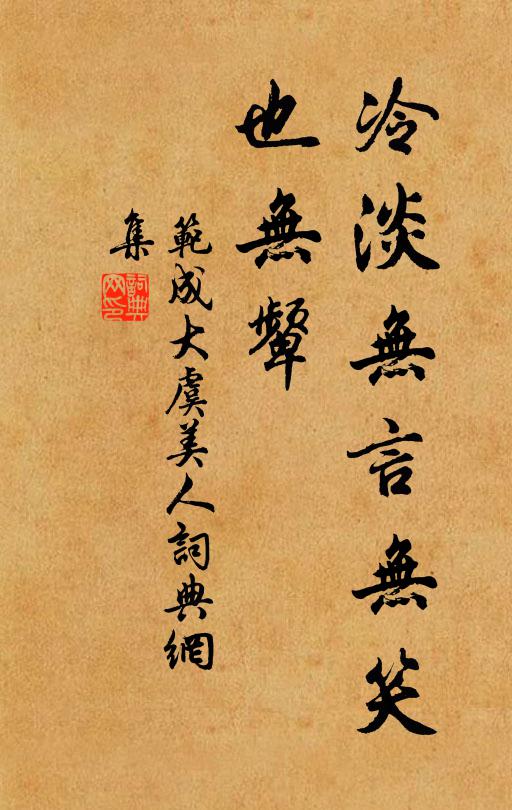 冷淡無言無笑
也無顰
範成大虞美人詞典網
集
詞典
网印